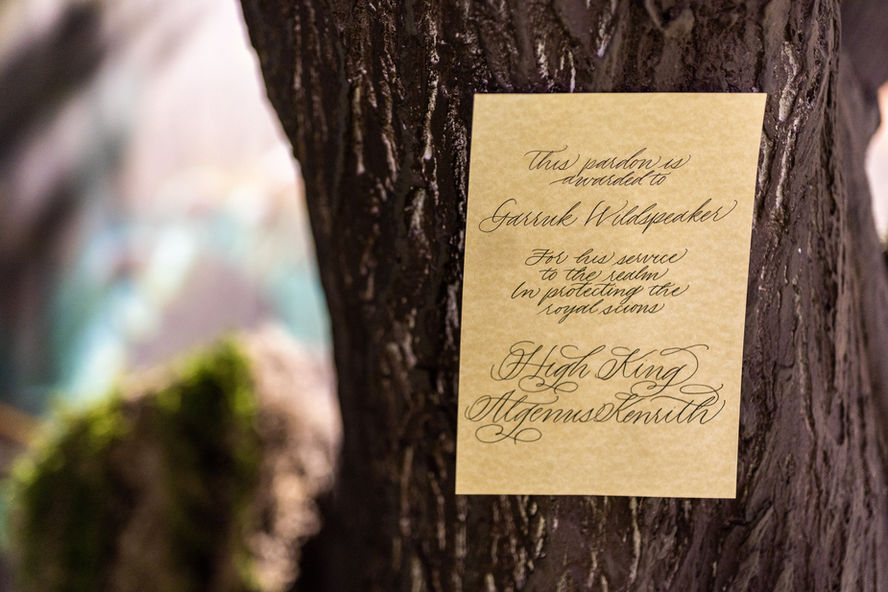 This pardon is
awarded to
Garruk Wildspeaker
For his service
to the realm
In protecting the
royal scions
High King
Algenus Kenrith